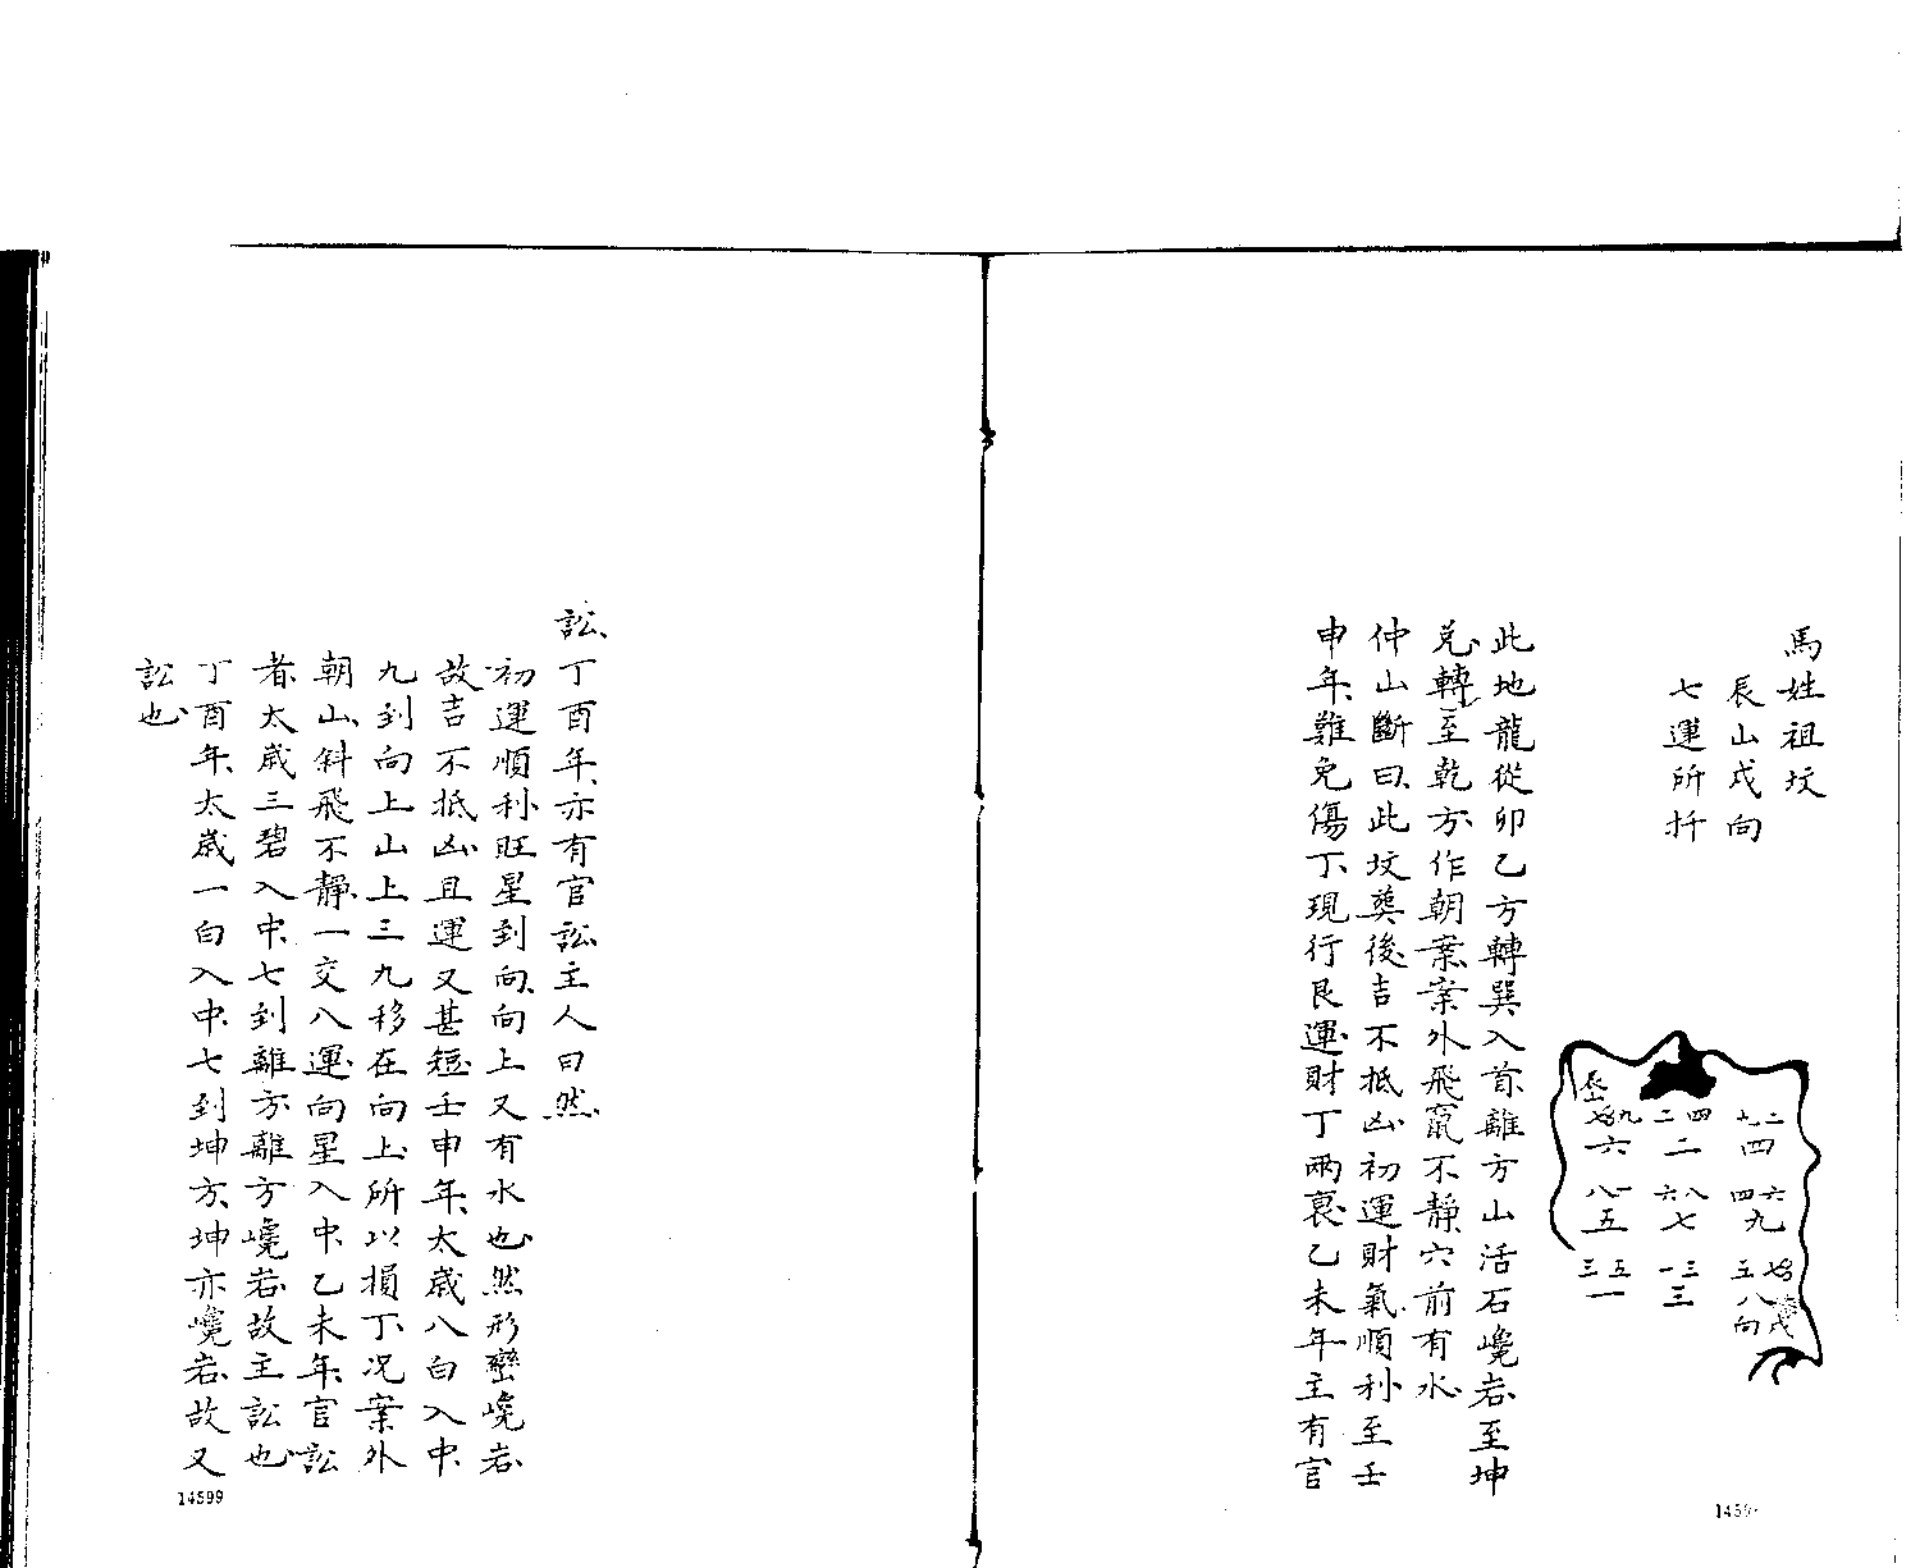 馬姓祖坟
辰山戌向
七運所扦
辰
七九 二四 九二
六 二 四
八一 六八 四六
五 七 九
三五 一三 五七
一 三 八
向
此地龍從卯乙方轉巽入首離方山活石巉岩至坤
兌轉至乾方作朝案案外飛竄不靜穴前有水
仲山斷曰此坟葬後吉不抵凶初運財氣順利至壬
申年難免傷丁現行艮運財丁兩衰乙未年主有官
訟丁酉年亦有官訟主人曰然
初運順利旺星到向向上又有水也然形巒巉岩
故吉不抵凶且運又甚短壬申年太歲八白入中
九到向上山上三九移在向上所以損丁况案外
朝山斜飛不靜一交八運向星入中乙未年官訟
者太歲三碧入中七到離方離方巉岩故主訟也
丁酉年太歲一白入中七到坤方坤亦巉岩故又
訟也
14599